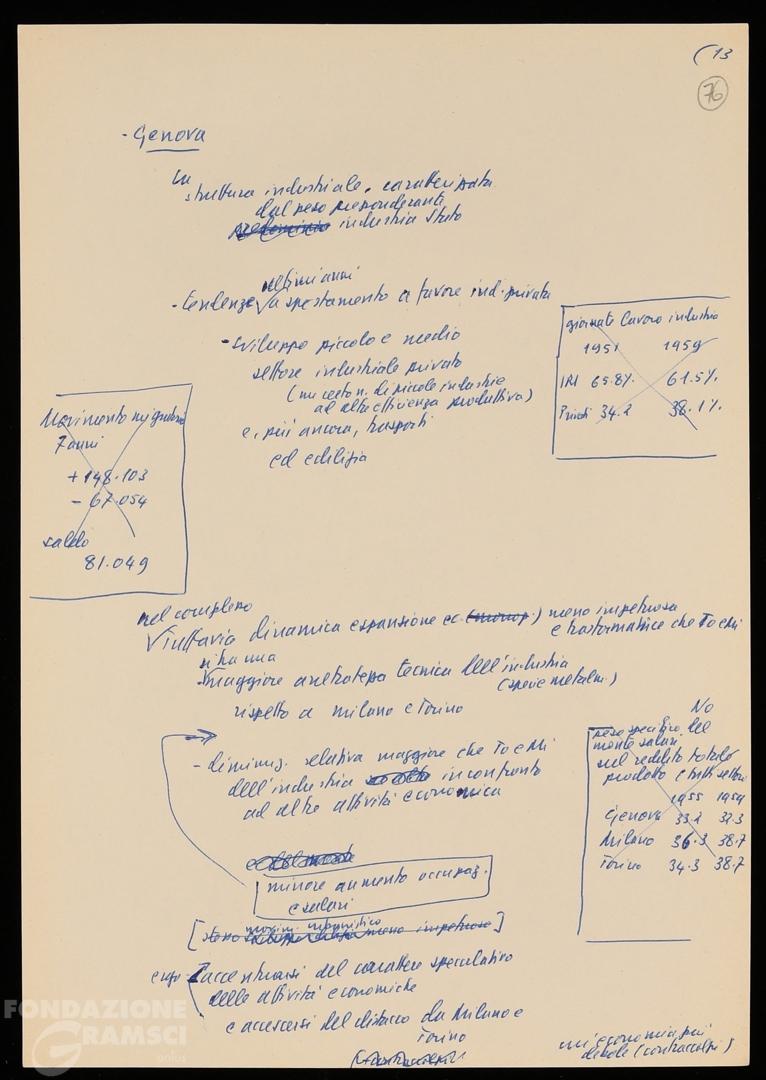 ( 13
76
- Genova
in
struttura industriale. caratterizzata
dal peso preponderante
predominio industria Stato
ultimi anni
- tendenze √ a spostamento a favore ind. privata
- sviluppo piccolo e medio
settore industriale privato
(un certo n. di piccole industrie
ad alta efficienza produttiva)
e, più ancora, trasporti
ed edilizia
giornate lavoro industria
1951 1959
IRI 65.8% 61.5%
Privati 34.2 38.1%
Movimento migratorio
7 anni
+ 148.103
- 67.054
saldo
81.049
nel complesso
√ Tuttavia dinamica espansione ec (monop.) meno impetuosa
e trasformatrice che To e Mi
si ha una
- maggiore arretratezza tecnica dell'industria
(specie metalm.)
rispetto a Milano e Torino
- diminuz. relativa maggiore che To e Mi
dell'industria in confronto
ad altre attività economica
minore aumento occupaz.
e salari
margini
[ meno impetuoso ]
ergo
l'accentuarsi del carattere speculativo
delle attività economiche
e accrescersi del distacco da Milano e
Torino
No
peso specifico del
monte salari
sul reddito totale
prodotto e tutti settori
1955 1959
Genova 33.2 32.3
Milano 36.3 38.7
Torino 34.3 38.7
un'economia più
debole (contraccolpi)
FONDAZIONE
GRAMSCI
onlus